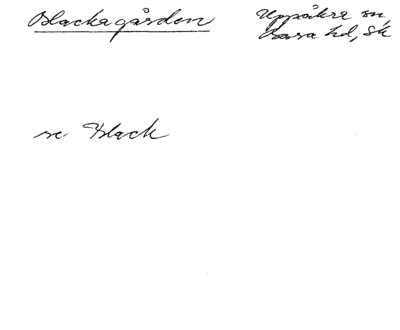 Blackagården
Uppåkra sn,
Bara hd, Sk
se Black